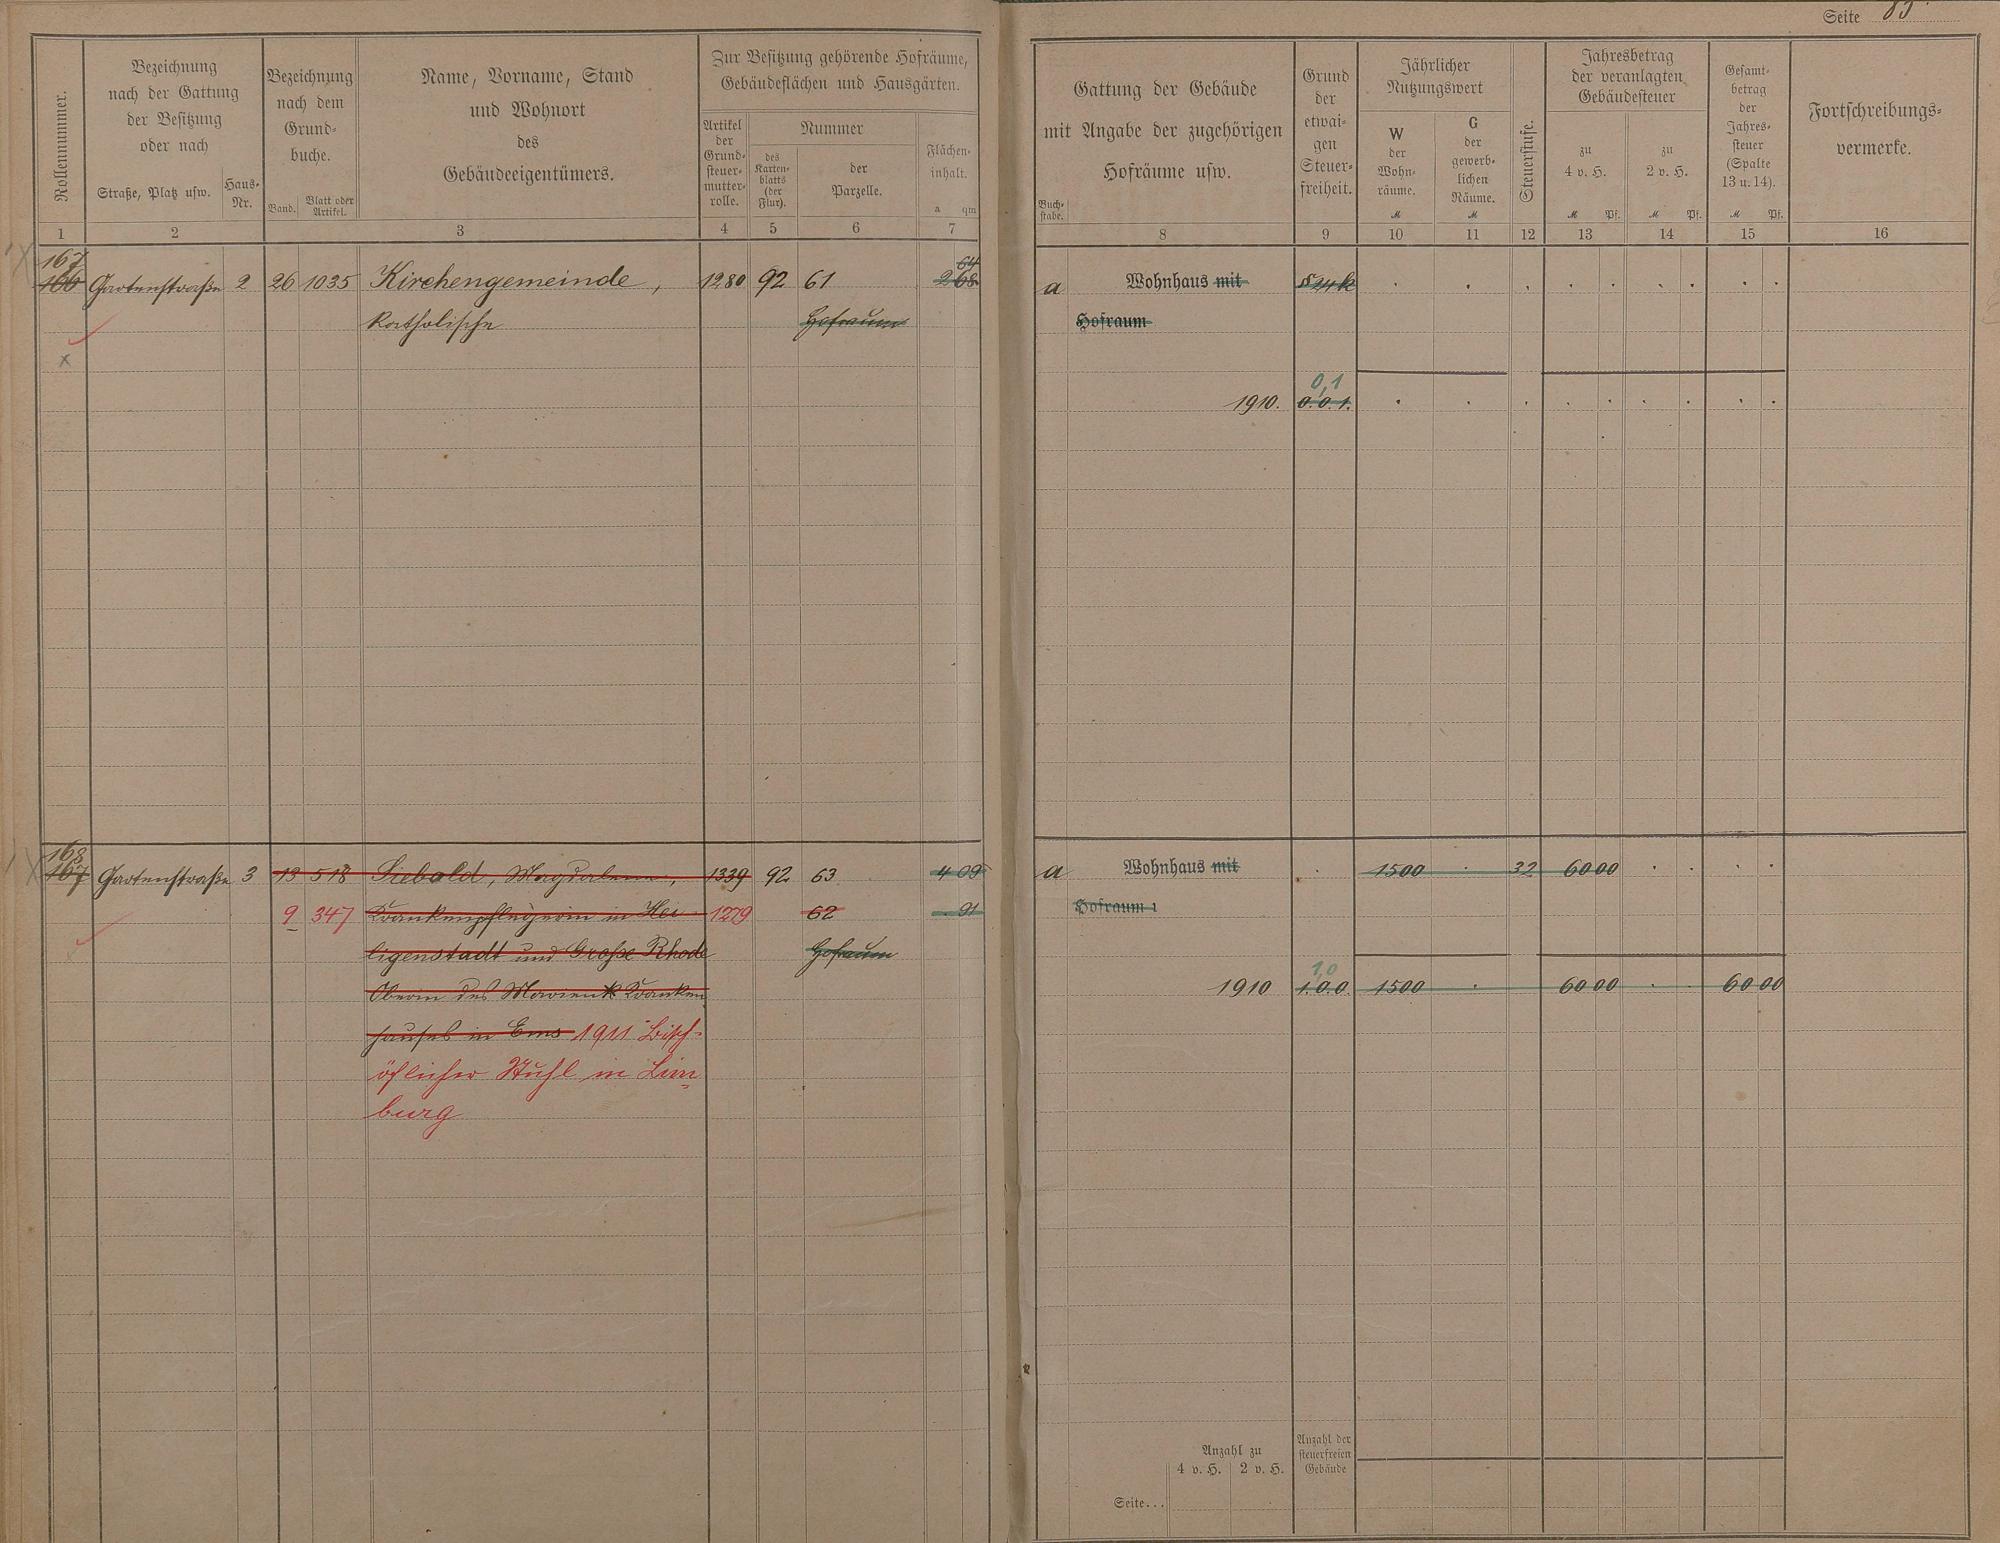 Seite 83
Rollennummer.
Bezeichnung
nach der Gattung
der Besitzung
oder nach
Straße, Platz usw.
Haus-
Nr.
Bezeichnung
nach dem
Grund-
buche.
Band.
Blatt oder
Artikel.
Name, Vorname, Stand
und Wohnort
des
Gebäudeeigentümers.
Zur Besitzung gehörende Hofräume,
Gebäudeflächen und Hausgärten.
Artikel
der
Grund-
steuer-
mutter-
rolle.
Nummer
des
Karten-
blatts
(der
Flur).
der
Parzelle.
Flächen-
inhalt.
a qm
1 2 3 4 5 6 7
167
166 Gartenstraße 2 26 1035 Kirchengemeinde, 1280 92 61 2 68
64
katholische Hofraum
168
167 Gartenstraße 3 13 518 Siebold, Magdalena, 1339 92 63 4 09
9 347 Krankenpflegerin in Hei- 1279 62 91
ligenstadt und Große Rhode Hofraum
Oberin des Marien Kranken
hauses in Ems 1911 Bisch-
öflicher Stuhl in Lim
burg
Buch-
stabe.
Gattung der Gebäude
mit Angabe der zugehörigen
Hofräume usw.
Grund
der
etwai-
gen
Steuer-
freiheit.
Jährlicher
Nutzungswert
W
der
Wohn-
räume.
M
G
der
gewerb-
lichen
Räume.
M
Steuerstufe.
Jahresbetrag
der veranlagten
Gebäudesteuer
zu
4 v. H.
M Pf.
zu
2 v. H.
M Pf.
Gesamt-
betrag
der
Jahres-
steuer
(Spalte
13 u. 14).
M Pf.
Fortschreibungs-
vermerke.
8 9 10 11 12 13 14 15 16
a Wohnhaus mit § 24k
Hofraum
0,1
1910. 0.0.1.
a Wohnhaus mit 1500 32 60 00
Hofraum
1,0
1910 1.0.0. 1500 60 00 60 00
Anzahl zu
4 v. H. 2 v. H.
Anzahl der
steuerfreien
Gebäude
Seite...